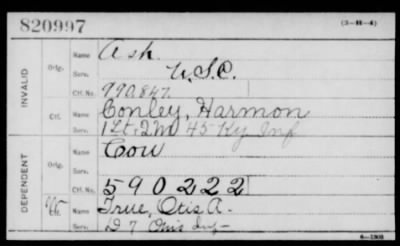 820997 (3-H-4)
INVALID
Orig.
Name Ash
Serv. U.S.C.
Ctf. No. 990847
Ctf.
Name Conley, Harmon
Serv. 1 Lt, 2 M 45 Ky Inf
DEPENDENT
Orig.
Name Cow
Serv.
Ctf. No. 590222
Ctf.
Name True, Otis A.
Serv. D 7 Inf
6-1903